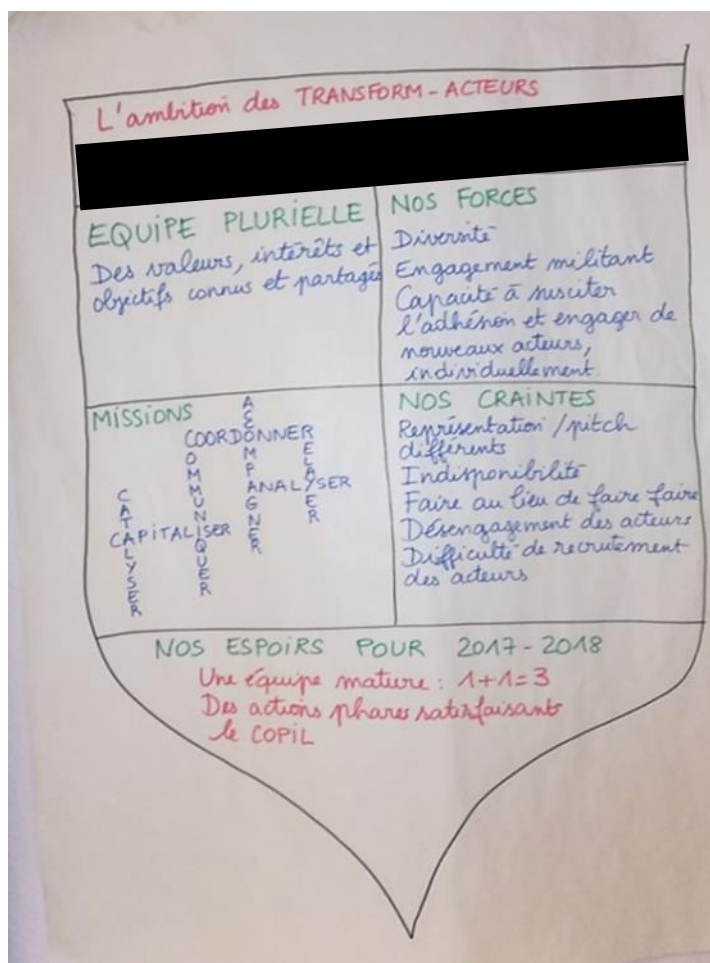 L'ambition des TRANSFORM-ACTEURS
EQUIPE PLURIELLE
Des valeurs, intérêts et
objectifs connus et partagés
NOS FORCES
Diversité
Engagement militant
Capacité à susciter
l'adhésion et engager de
nouveaux acteurs,
individuellement.
MISSIONS
ACCOMPAGNER
COORDONNER
COMMUNIQUER
RELAYER
ANALYSER
CATALYSER
CAPITALISER
NOS CRAINTES
Représentation / pitch
différents
Indisponibilité
Faire au lieu de faire faire
Désengagement des acteurs
Difficulté de recrutement
des acteurs
NOS ESPOIRS POUR 2017-2018
Une équipe mature : 1+1=3
Des actions phares satisfaisant
le COPIL